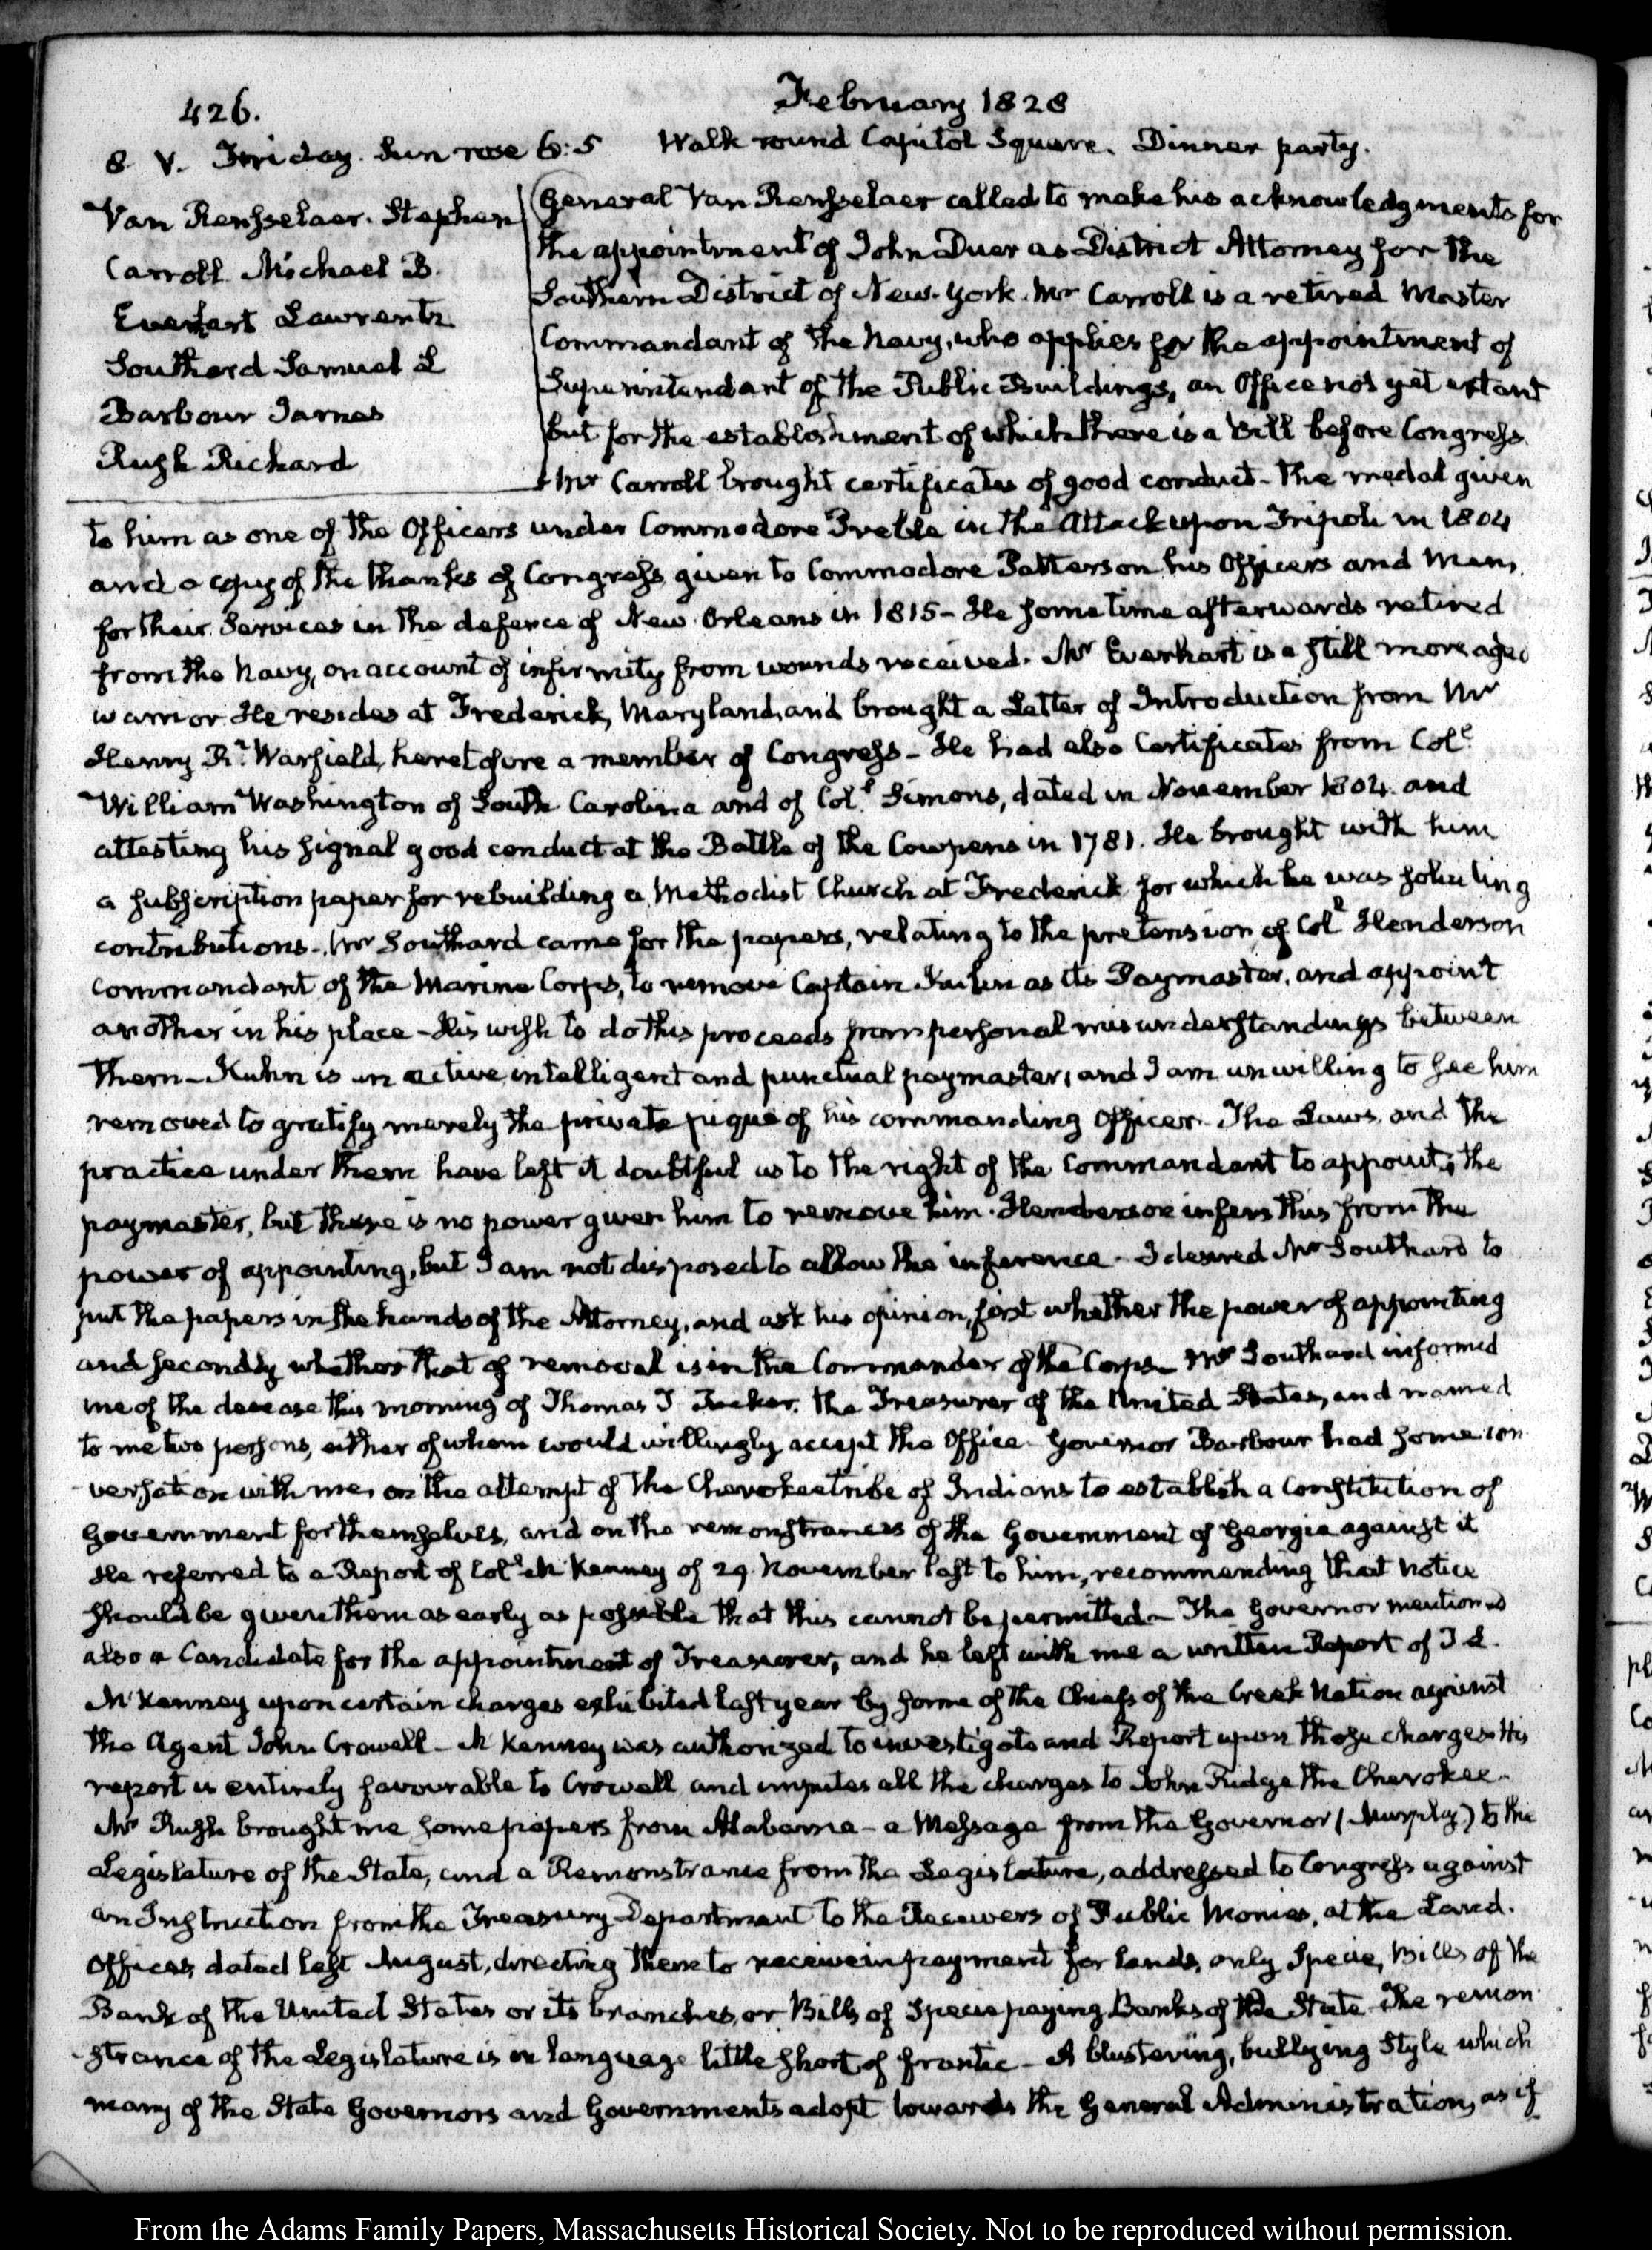 426.
February 1828
8. V. Friday. Sun rose 6:5 Walk round Capitol Square. Dinner party.
Van Rensselaer. Stephen
Carroll Michael B.
Everhart Lawrence
Southard Samuel L
Barbour James
Rush Richard
General Van Rensselaer called to make his acknowledgments for
the appointment of John Duer as District Attorney for the
Southern District of New-York. Mr Carroll is a retired Master
Commandant of the Navy, who applies for the appointment of
Superintendant of the Public Buildings, an Office not yet extant
but for the establishment of which there is a Bill before Congress.
Mr Carroll brought certificates of good conduct- the medal given
to him as one of the Officers under Commodore Preble in the Attack upon Tripoli in 1804
and a copy of the thanks of Congress given to Commodore Patterson his Officers and Men,
for their Services in the defence of New Orleans in 1815- He sometime afterwards retired
from the Navy, on account of infirmity from wounds received. Mr Everhart is a still more aged
warrior He resides at Frederick, Maryland, and brought a Letter of Introduction from Mr
Henry R. Warfield, heretofore a member of Congress- He had also Certificates from Coll.
William Washington of South Carolina and of Coll. Simons, dated in November 1804. and
attesting his signal good conduct at the Battle of the Cowpens in 1781. He brought with him
a subscription paper for rebuilding a Methodist Church at Frederick for which he was soliciting
contributions-. Mr Southard came for the papers, relating to the pretension of Coll Henderson
commandant of the Marine Corps, to remove Captain Kuhn as its Paymaster, and appoint
another in his place- His wish to do this proceeds from personal misunderstandings between
them- Kuhn is an active intelligent and punctual paymaster, and I am unwilling to see him
removed to gratify merely the private pique of his commanding Officer. The Laws, and the
practice under them have left it doubtful as to the right of the Commandant to appoint the
paymaster, but there is no power given him to remove him. Henderson infers this from the
power of appointing, but I am not disposed to allow the inference- I desired Mr Southard to
put the papers in the hands of the Attorney, and ask his opinion, first whether the power of appointing
and secondly whether that of removal is in the Commander of the Corps- Mr Southard informed
me of the decease this morning of Thomas T Tucker, the Treasurer of the United States, and named
to me two persons, either of whom would willingly accept the Office. Governor Barbour had some con-
versation with me, on the attempt of the Cherokee tribe of Indians to establish a Constitution of
Government for themselves, and on the remonstrances of the Government of Georgia against it
He referred to a Report of Coll. McKenney of 29. November last to him, recommending that notice
should be given them as early as possible that this cannot be permitted- The Governor mentioned
also a Candidate for the appointment of Treasurer, and he left with me a written Report of T. L.
McKenney upon certain charges exhibited last year by some of the Chiefs of the Creek Nation against
the Agent John Crowell- McKenney was authorized to investigate and Report upon those charges. His
report is entirely favourable to Crowell and imputes all the charges to John Ridge the Cherokee-
Mr Rush brought me some papers from Alabama- a Message from the Governor (Murphy) to the
Legislature of the State, and a Remonstrance from the Legislature, addressed to Congress against
an Instruction from the Treasury Department to the Receivers of Public Monies, at the Land.
Offices, dated last August, directing them to receive in payment for lands, only Specie, Bills of the
Bank of the United States or its branches, or Bills of Specie paying Banks of the State- The remon-
strance of the Legislature is in language little short of frantic- A blustering, bullying Style which
many of the State Governors and Governments adopt towards the General Administration, as if
From the Adams Family Papers, Massachusetts Historical Society. Not to be reproduced without permission.